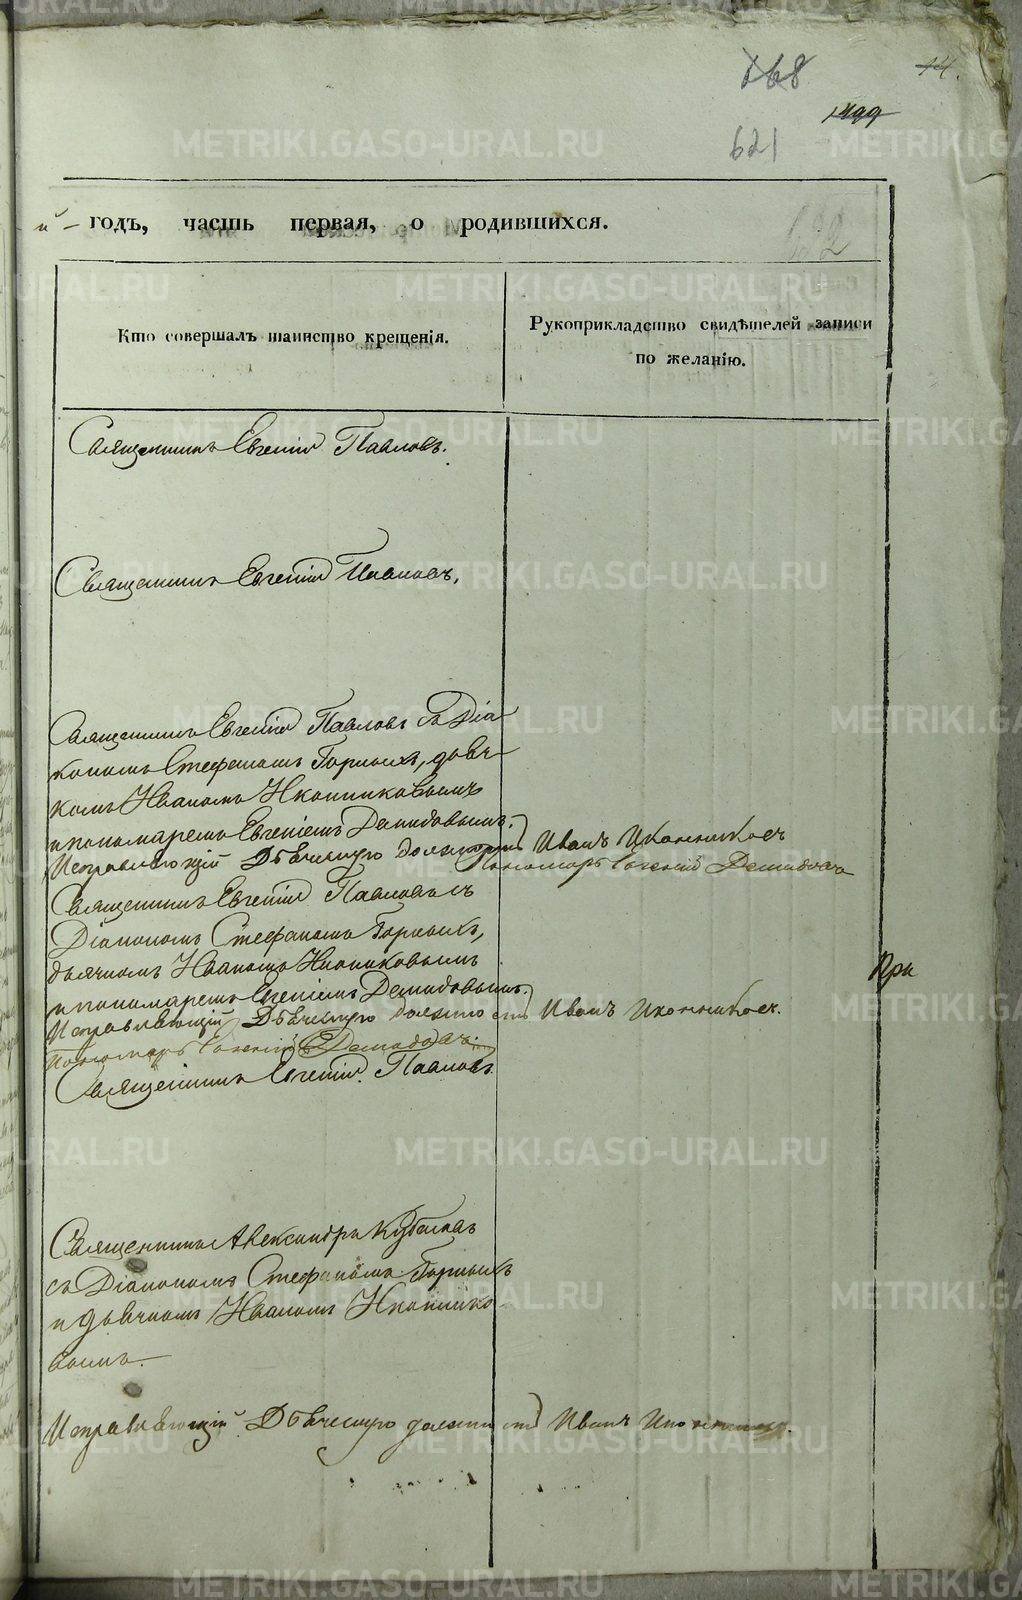 168
14.
1499
621
622
й - годъ, часть первая, о родившихся.
Кто совершалъ таинство крещенія.
Рукоприкладство свидѣтелей записи
по желанію.
Священникъ Евгеній Павловъ.
Священникъ Евгеній Павловъ.
Священникъ Евгеній Павловъ съ Діа
кономъ Стефаномъ Горныхъ, дьяч
комъ Иваномъ Иконниковымъ
и пономаремъ Евгеніемъ Демидовымъ.
Исправляющій Дьяческую должность Иванъ Иконниковъ
Пономарь Евгеній Демидовъ
Священникъ Евгеній Павловъ съ
Діакономъ Стефаномъ Горныхъ,
дьячкомъ Иваномъ Иконниковымъ
и пономаремъ Евгеніемъ Демидовымъ.
При
Исправляющій Дьяческую должность Иванъ Иконниковъ.
Пономарь Евгеній Демидовъ
Священникъ Евгеній Павловъ
Священникъ Александръ
съ Діакономъ Стефаномъ Горныхъ
и дьячкомъ Иваномъ Иконнико-
вымъ.
Исправляющій Дьяческую должность Иванъ Иконниковъ.
METRIKI.GASO-URAL.RU